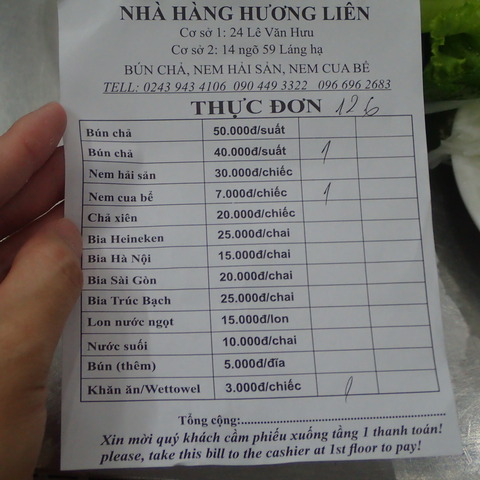 NHÀ HÀNG HƯƠNG LIÊN
Cơ sở 1: 24 Lê Văn Hưu
Cơ sở 2: 14 ngõ 59 Láng hạ
BÚN CHẢ, NEM HẢI SẢN, NEM CUA BỂ
TELL: 0243 943 4106 090 449 3322 096 696 2683
THỰC ĐƠN 126
Bún chả 50.000đ/suất
Bún chả 40.000đ/suất 1
Nem hải sản 30.000đ/chiếc
Nem cua bể 7.000đ/chiếc 1
Chả xiên 20.000đ/chiếc
Bia Heineken 25.000đ/chai
Bia Hà Nội 15.000đ/chai
Bia Sài Gòn 20.000đ/chai
Bia Trúc Bạch 25.000đ/chai
Lon nước ngọt 15.000đ/lon
Nước suối 10.000đ/chai
Bún (thêm) 5.000đ/đĩa
Khăn ăn/Wettowel 3.000đ/chiếc
Tổng cộng:......................................................
Xin mời quý khách cầm phiếu xuống tầng 1 thanh toán!
please, take this bill to the cashier at 1st floor to pay!